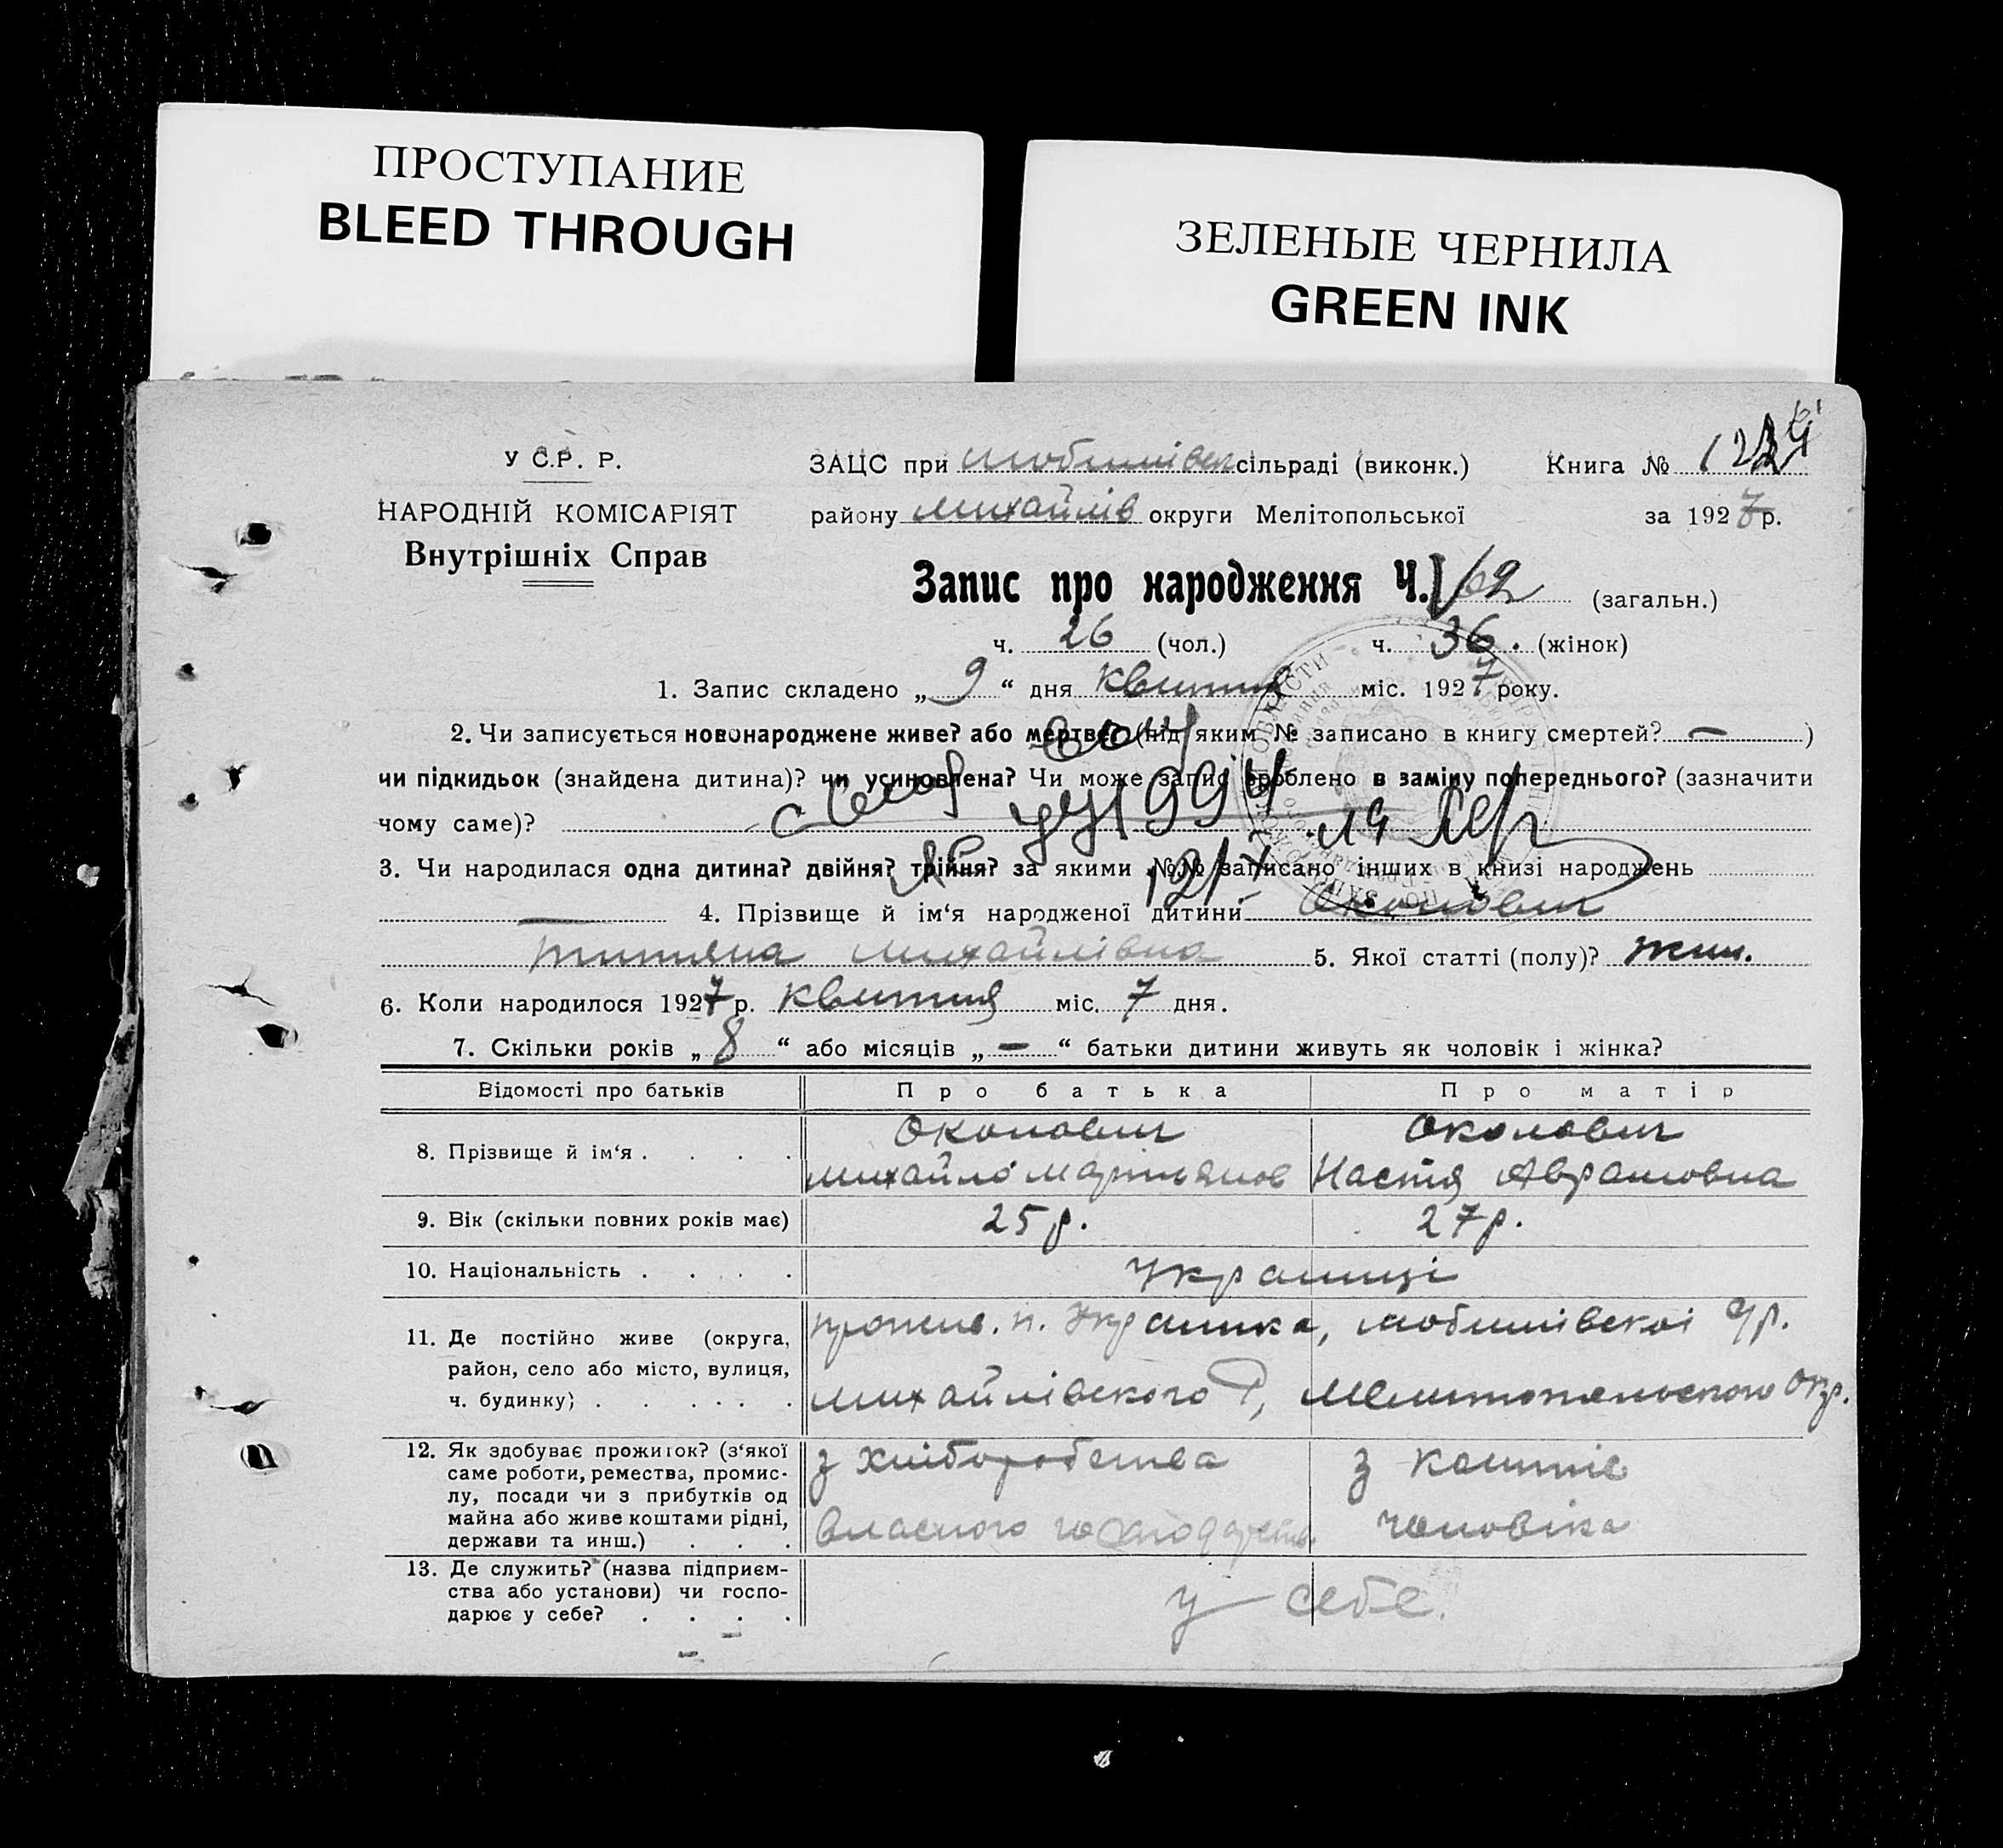 ПРОСТУПАНИЕ
BLEED THROUGH
ЗЕЛЕНЫЕ ЧЕРНИЛА
GREEN INK
У С.Р. Р.
НАРОДНІЙ КОМІСАРІЯТ
Внутрішніх Справ
ЗАЦС при Любимівск сільраді (виконк.) Книга №
району Михайлів округи Мелітопольської за 1927 р.
Запис про народження Ч. 62 (загальн.)
ч. 26 (чол.) ч. 36. (жінок)
1. Запис складено „ 9 “ дня квітня міс. 1927 року.
2. Чи записується новонароджене живе? або мертве? (під яким № записано в книгу смертей? — )
чи підкидьок (знайдена дитина)? чи усиновлена? Чи може запис зроблено в заміну попереднього? (зазначити
чому саме)?
3. Чи народилася одна дитина? двійня? трійня? за якими №№ записано інших в книзі народжень
4. Прізвище й ім‘я народженої дитини Околович
Титяна Михайлівна 5. Якої статті (полу)? жін.
6. Коли народилося 1927 р. квітня міс. 7 дня.
7. Скільки років „ 8 “ або місяців „ — “ батьки дитини живуть як чоловік і жінка?
Відомості про батьків Про батька Про матір
8. Прізвище й ім‘я . . . . Околович Околович
Михайло Мартьянов Настя Аврамовна
9. Вік (скільки повних років має) 25 р. 27 р.
10. Національність . . . . Українці
11. Де постійно живе (округа, район, село або місто, вулиця, ч. будинку) . . . . .
прожив. п. Українка, Любимівскоі с/р.
Михайлівского Р, Мелитопольского Окр.
12. Як здобуває прожиток? (з‘якої саме роботи, ремества, промислу, посади чи з прибутків од майна або живе коштами рідні, держави та инш.) . . .
з хліборобства з коштів
власного господарств. чоловіка
13. Де служить? (назва підприємства або установи) чи господарює у себе? . . . .
у себе.